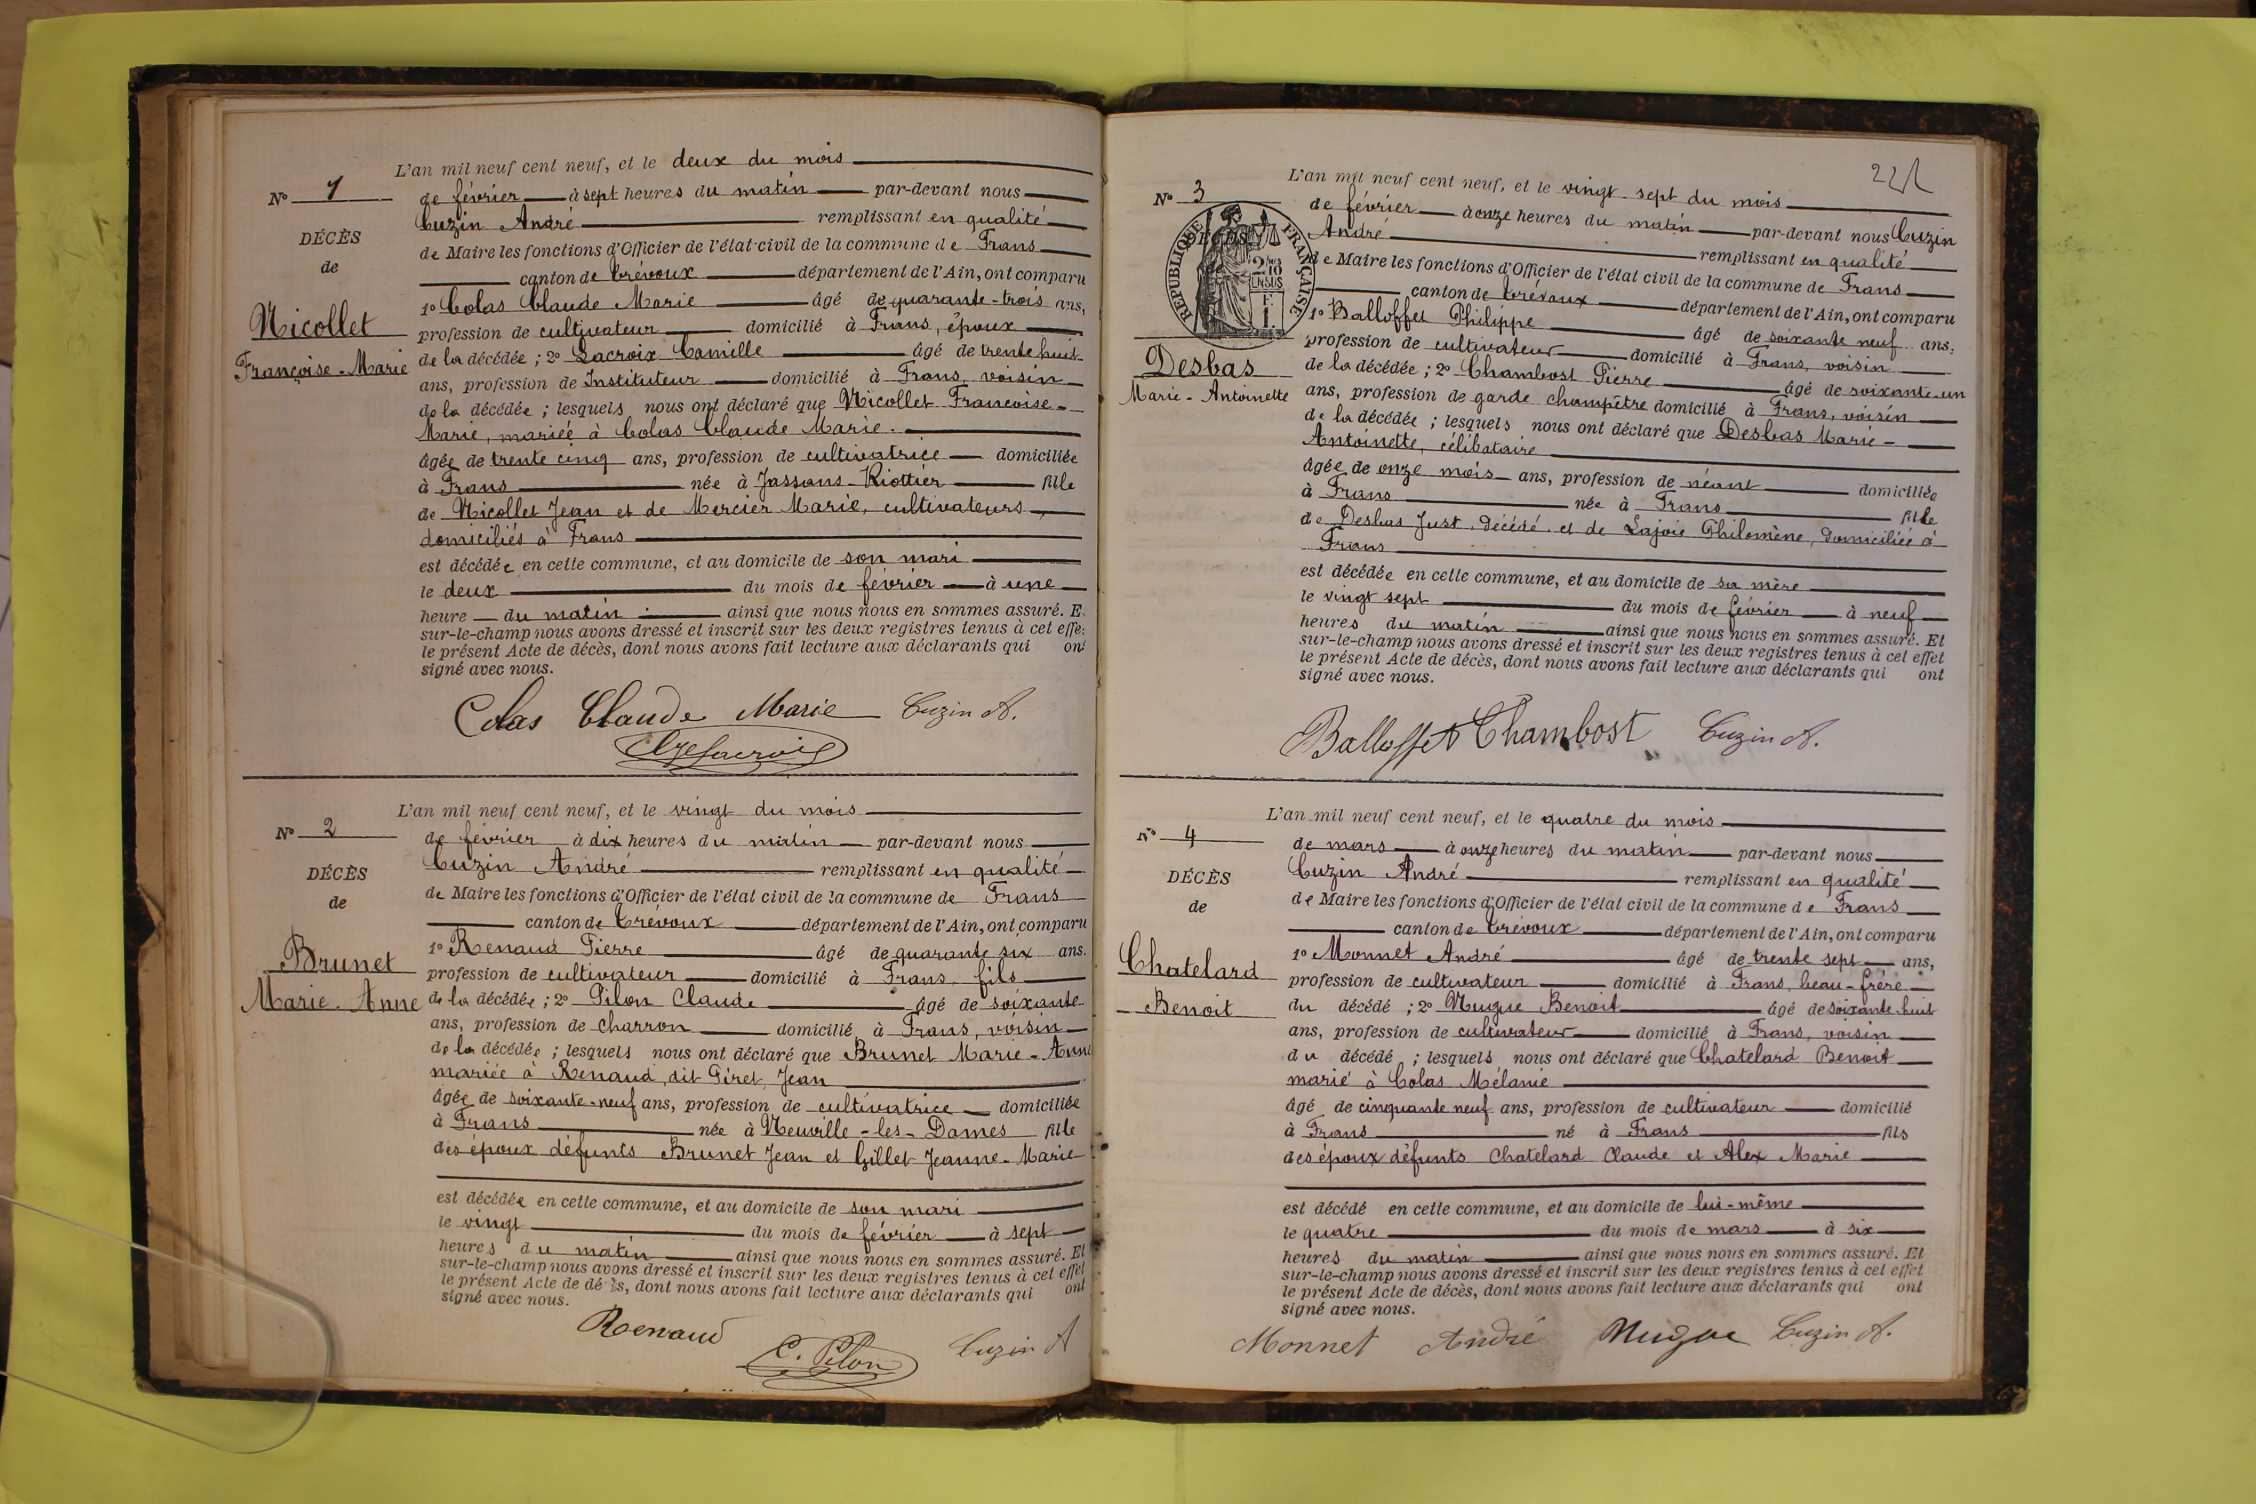 L'an mil neuf cent neuf, et le deux du mois
N° 1
de février à sept heures du matin par-devant nous
Cuzin André remplissant en qualité
DÉCÈS
de Maire les fonctions d'Officier de l'état-civil de la commune de Frans
de
canton de Trévoux département de l'Ain, ont comparu
1° Colas Claude Marie âgé de quarante-trois ans,
Nicollet
profession de cultivateur domicilié à Frans, époux
Françoise-Marie
de la décédée ; 2° Lacroix Camille âgé de trente huit
ans, profession de Instituteur domicilié à Frans, voisin
de la décédée ; lesquels nous ont déclaré que Nicollet Françoise-
Marie, mariée à Colas Claude Marie.
âgée de trente cinq ans, profession de cultivatrice domiciliée
à Frans née à Jassans-Riottier fille
de Nicollet Jean et de Mercier Marie, cultivateurs,
domiciliés à Frans
est décédée en cette commune, et au domicile de son mari
le deux du mois de février à une
heure du matin ainsi que nous nous en sommes assuré. E
sur-le-champ nous avons dressé et inscrit sur les deux registres tenus à cet effet
le présent Acte de décès, dont nous avons fait lecture aux déclarants qui ont
signé avec nous.
Colas Claude Marie Cuzin A.
L'an mil neuf cent neuf, et le vingt du mois
N° 2
de février à dix heures du matin par-devant nous
Cuzin André remplissant en qualité
DÉCÈS
de Maire les fonctions d'Officier de l'état civil de la commune de Frans
de
canton de Trévoux département de l'Ain, ont comparu
1° Renaud Pierre âgé de quarante six ans.
Brunet
profession de cultivateur domicilié à Frans, fils
Marie-Anne
de la décédée ; 2° Pilon Claude âgé de soixante
ans, profession de charron domicilié à Frans, voisin
de la décédée ; lesquels nous ont déclaré que Brunet Marie-Anne
mariée à Renaud, dit Piret, Jean
âgée de soixante-neuf ans, profession de cultivatrice domiciliée
à Frans née à Neuville-les-Dames fille
des époux défunts Brunet Jean et Gillet Jeanne-Marie
est décédée en cette commune, et au domicile de son mari
le vingt du mois de février à sept
heures du matin ainsi que nous nous en sommes assuré. Et
sur-le-champ nous avons dressé et inscrit sur les deux registres tenus à cet effet
le présent Acte de décès, dont nous avons fait lecture aux déclarants qui ont
signé avec nous.
Renaud C. Pilon Cuzin A
L'an mil neuf cent neuf, et le vingt sept du mois
N° 3
de février à onze heures du matin par-devant nous Cuzin
André remplissant en qualité
RÉPUBLIQUE FRANÇAISE
de Maire les fonctions d'Officier de l'état civil de la commune de Frans
canton de Trévoux département de l'Ain, ont comparu
1° Balloffet Philippe âgé de soixante neuf ans,
profession de cultivateur domicilié à Frans, voisin
Desbas
de la décédée ; 2° Chambost Pierre âgé de soixante-un
Marie-Antoinette
ans, profession de garde champêtre domicilié à Frans, voisin
de la décédée ; lesquels nous ont déclaré que Desbas Marie-
Antoinette, célibataire
âgée de onze mois ans, profession de néant domiciliée
à Frans née à Frans fille
de Desbas Just, décédé et de Lajoie Philomène, domiciliée à
Frans
est décédée en cette commune, et au domicile de sa mère
le vingt sept du mois de février à neuf
heures du matin ainsi que nous nous en sommes assuré. Et
sur-le-champ nous avons dressé et inscrit sur les deux registres tenus à cet effet
le présent Acte de décès, dont nous avons fait lecture aux déclarants qui ont
signé avec nous.
Balloffet Chambost Cuzin A.
L'an mil neuf cent neuf, et le quatre du mois
N° 4
de mars à onze heures du matin par-devant nous
Cuzin André remplissant en qualité
DÉCÈS
de Maire les fonctions d'Officier de l'état civil de la commune de Frans
de
canton de Trévoux département de l'Ain, ont comparu
1° Monnet André âgé de trente sept ans,
Chatelard
profession de cultivateur domicilié à Frans, beau-frère
Benoit
du décédé ; 2° Nugue Benoit âgé de soixante huit
ans, profession de cultivateur domicilié à Frans, voisin
du décédé ; lesquels nous ont déclaré que Chatelard Benoit
marié à Colas Mélanie
âgé de cinquante neuf ans, profession de cultivateur domicilié
à Frans né à Frans fils
des époux défunts Chatelard Claude et Alex Marie
est décédé en cette commune, et au domicile de lui-même
le quatre du mois de mars à six
heures du matin ainsi que nous nous en sommes assuré. Et
sur-le-champ nous avons dressé et inscrit sur les deux registres tenus à cet effet
le présent Acte de décès, dont nous avons fait lecture aux déclarants qui ont
signé avec nous.
Monnet André Nugue Cuzin A.